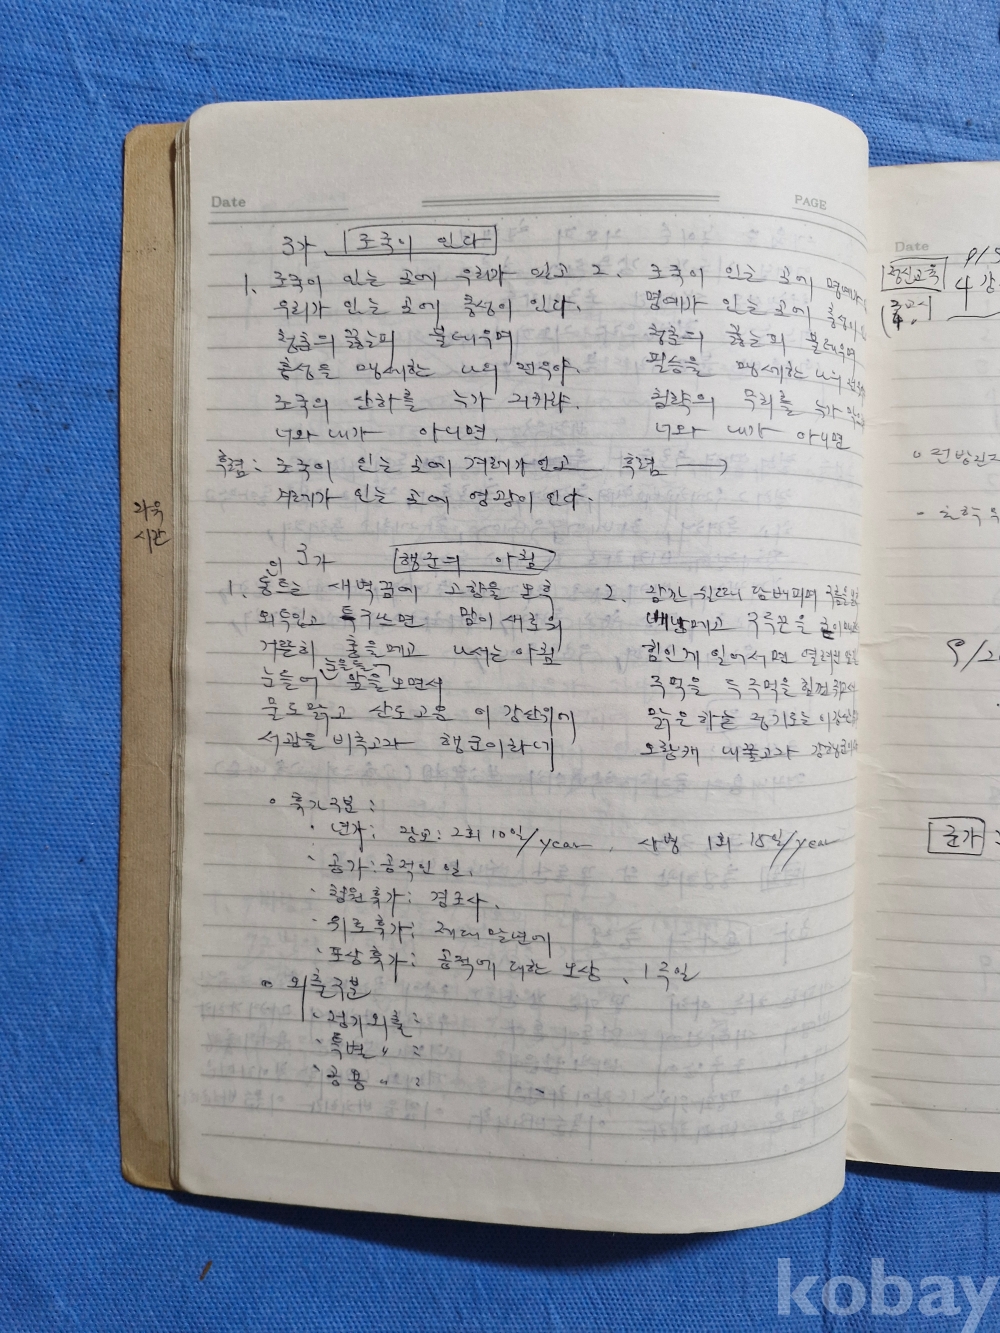 Date
PAGE
군가 조국이 있다
1. 조국이 있는 곳에 우리가 있고
우리가 있는 곳에 충성이 있다.
청춘의 끓는피 불태우며
충성을 맹세한 나의 전우야.
조국의 산하를 누가 지키랴.
너와 내가 아니면.
후렴: 조국이 있는 곳에 겨레가 있고
겨레가 있는 곳에 영광이 있다.
2. 조국이 있는 곳에 명예가
명예가 있는 곳에 충성이
청춘의 끓는피 불태우며
필승을 맹세한 나의
침략의 무리를 누가
너와 내가 아니면
후렴 →
과욱
시간
군가 행군의 아침
1. 동트는 새벽꿈에 고향을 본후
외투입고 투구쓰면 맘이새로와
거뜬히 총을메고 나서는아침
눈을들어 눈을들어 앞을보면서
물도맑고 산도고운 이강산위에
서광을 비추고자 행군이라네
2. 잠간 쉴때 담배피며 구름을
배낭메고 구두끈을
힘있게 일어서면 열려진
주먹을 두주먹을 힘껏쥐고서
맑은하늘 정기도는 이강산
오랑캐 내쫓고자 강행군
◦ 휴가구분:
· 년가: 장교: 2회 10일/year, 사병 1회 15일/year
· 공가: 공적인 일.
· 청원휴가: 경조사.
· 위로휴가: 제대말년에
· 포상휴가: 공적에 대한 보상, 1주일
◦ 외출구분
· 정기외출:
· 특별 〃 :
· 공용 〃 :
Date
정신교육
4
군가
kobay